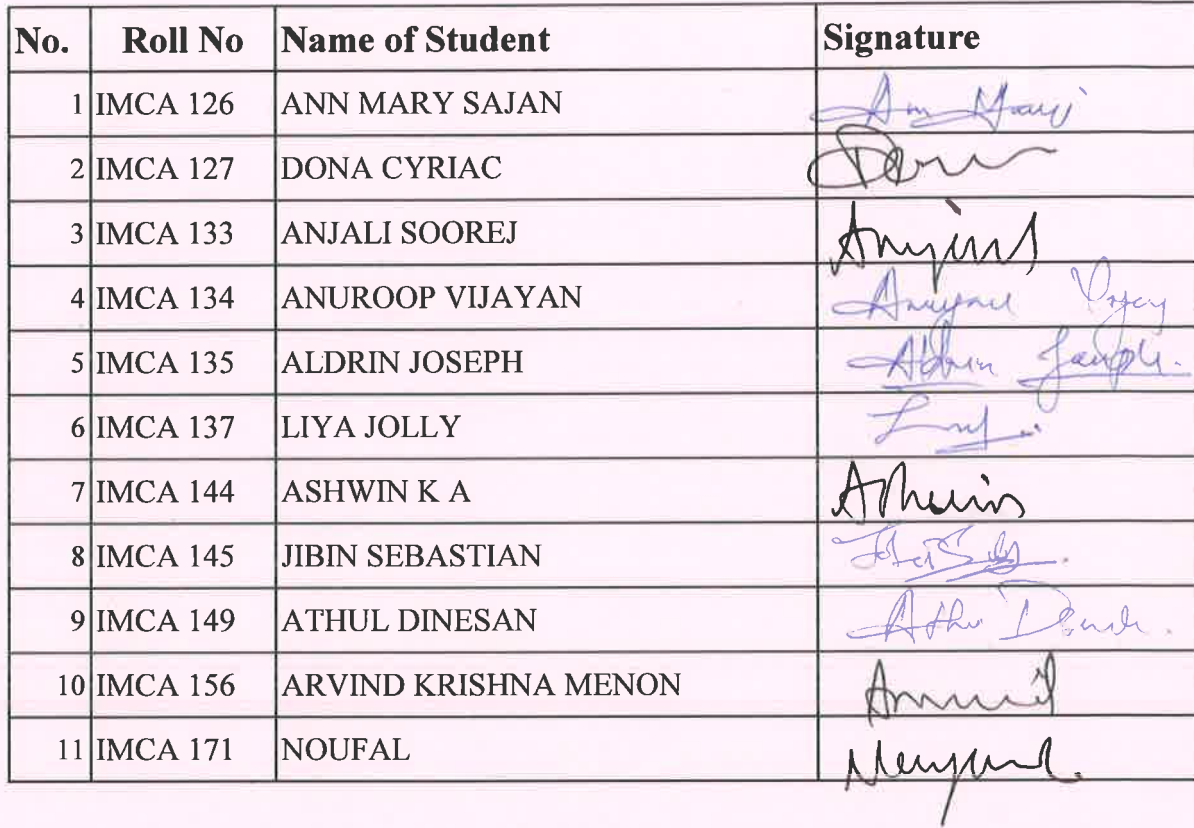 No. Roll No Name of Student Signature
1 IMCA 126 ANN MARY SAJAN Ann Mary
2 IMCA 127 DONA CYRIAC
3 IMCA 133 ANJALI SOOREJ
4 IMCA 134 ANUROOP VIJAYAN
5 IMCA 135 ALDRIN JOSEPH Aldrin Joseph.
6 IMCA 137 LIYA JOLLY
7 IMCA 144 ASHWIN K A
8 IMCA 145 JIBIN SEBASTIAN
9 IMCA 149 ATHUL DINESAN
10 IMCA 156 ARVIND KRISHNA MENON
11 IMCA 171 NOUFAL